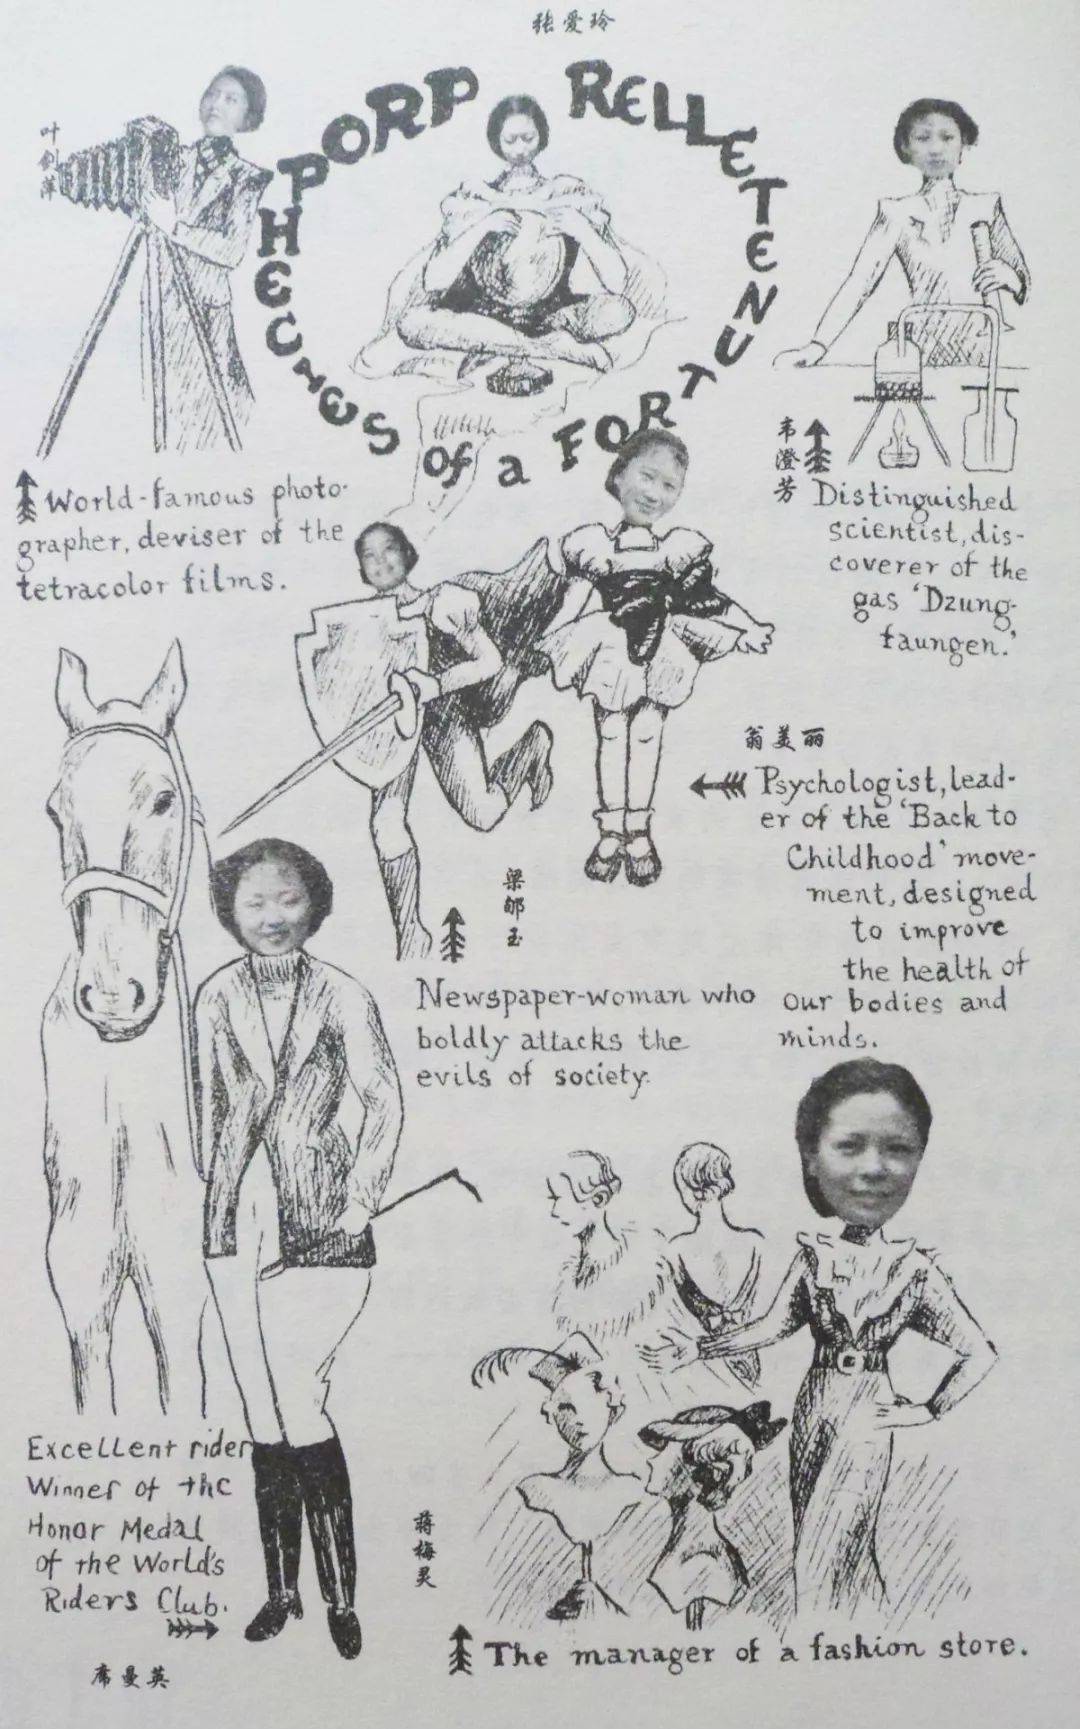 张爱玲
PROPHECIES of a FORTUNETELLER
World-famous photo-
grapher, deviser of the
tetracolor films.
韦澄芳
Distinguished
scientist, dis-
coverer of the
gas 'Dzung-
faungen.'
翁美丽
Psychologist, lead-
er of the 'Back to
Childhood' move-
ment, designed
to improve
the health of
our bodies and
minds.
Newspaper-woman who
boldly attacks the
evils of society.
Excellent rider
Winner of the
Honor Medal
of the World's
Riders Club.
席曼英
The manager of a fashion store.